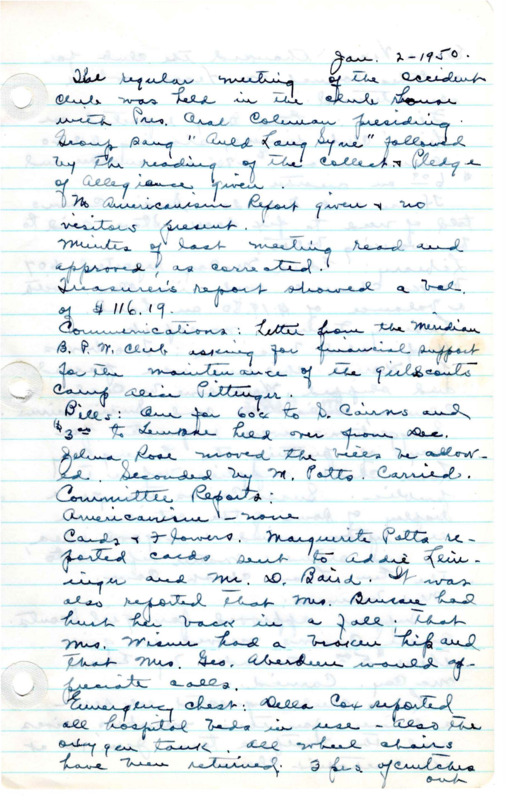 Jan. 2-1950.
The regular meeting of the Occident
Club was held in the club house
with Pres. Oral Coleman presiding.
Group sang "Auld Lang Syne" followed
by the reading of the collect & Pledge
of Allegiance given.
No Americanism Report given & no
visitors present.
Minutes of last meeting read and
approved, as corrected.
Treasurer's report showed a bal.
of $116.19.
Communications: Letter from the Meridian
B. P. W. Club asking for financial support
for the maintenance of the girl scouts
Camp Alice Pittenger.
Bills: One for 60¢ to D. Cairns and
$3.00 to held over from Dec.
Zelma Rose moved the bills be allow-
ed. Seconded by M. Potts. Carried.
Committee Reports:
Americanism - none
Cards & Flowers. Marguerite Potts re-
ported cards sent to Addie Lein-
inger and Mr. D. Baird. It was
also reported that Mrs. had
hurt her back in a fall. That
Mrs. Wisner had a broken hip and
that Mrs. Geo. Aberdeen would ap-
preciate calls.
Emergency chest: Della Cox reported
all hospital beds in use - also the
oxygen tank. All wheel chairs
have been returned. 3 prs. of crutches
out